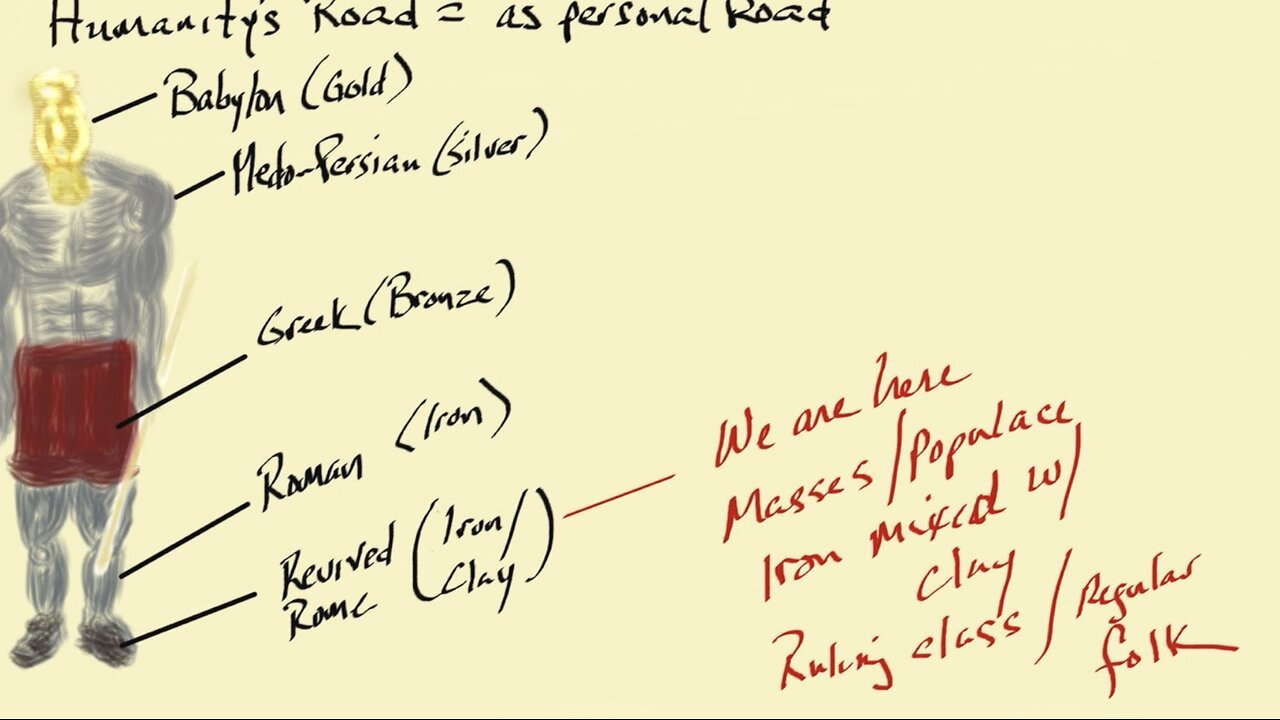 Humanity's Road = as personal Road
Babylon (Gold)
Medo-Persian (Silver)
Greek (Bronze)
Roman (Iron)
Revived (Iron/
Rome Clay)
We are here
Masses/Populace
Iron mixed w/
clay
Ruling class / Regular
folk